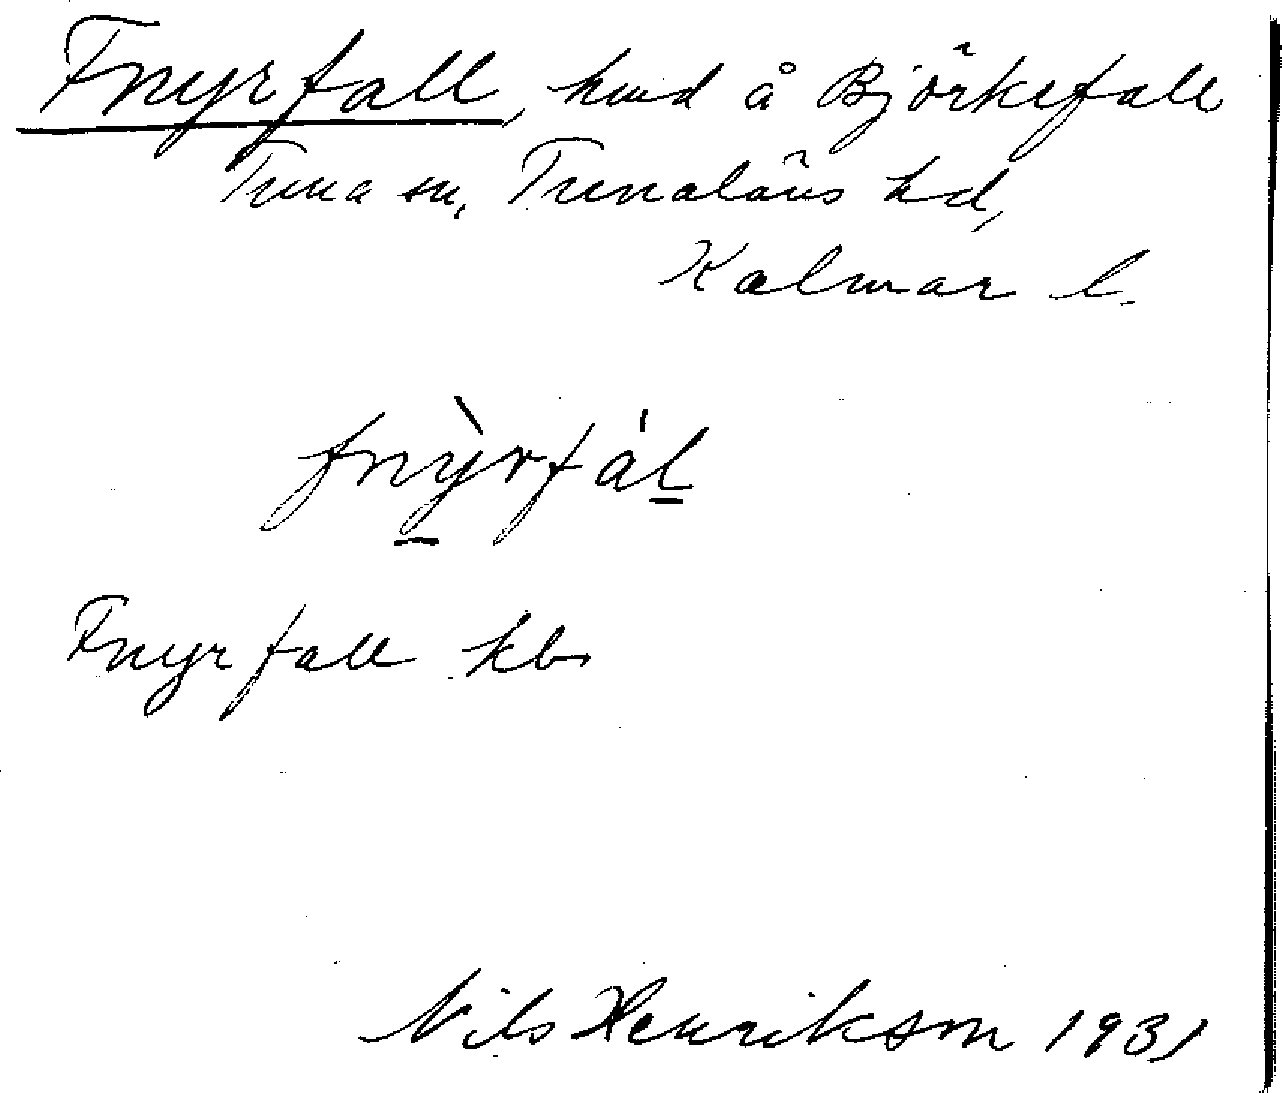 Fnyrfall, hmd å Björkefall
Tuna sn, Tunaläns hd,
Kalmar l.
fnỳrfa̍l
Fnyrfall kb
Nils Henrikson 1931